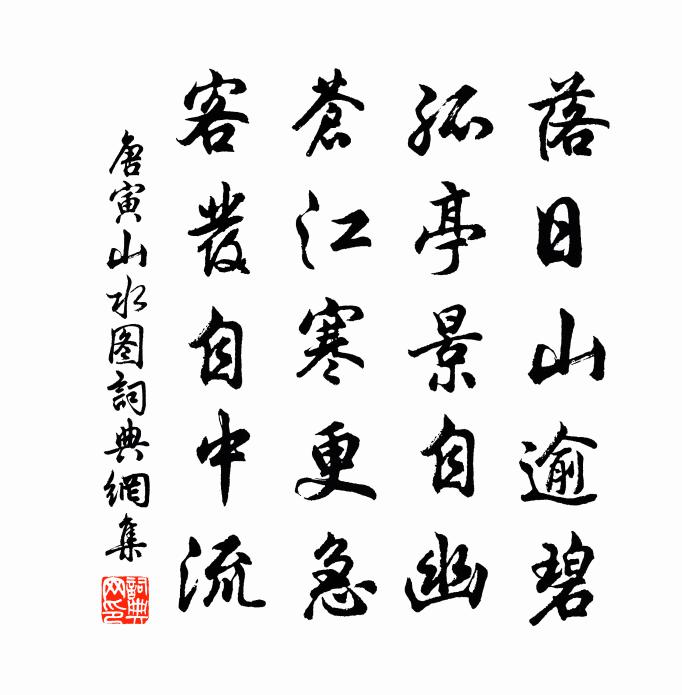 落日山逾碧
孤亭景自幽
蒼江寒更急
客發自中流
唐寅山水图詞典網集
詞典
网印